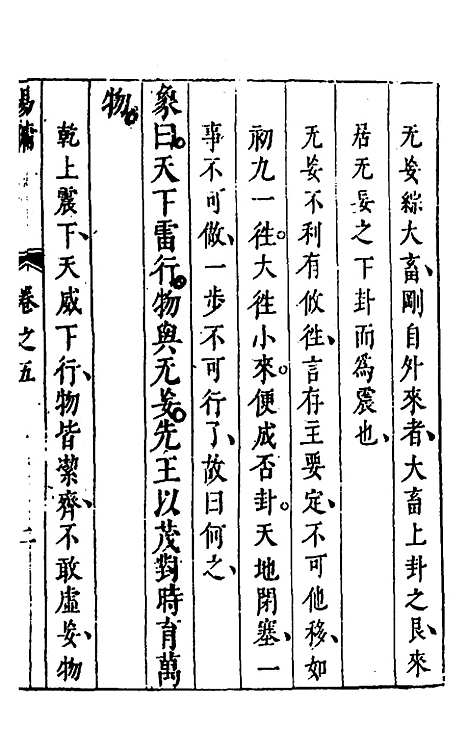 无妄綜大畜、剛自外來者、大畜上卦之艮、來
居无妄之下卦而爲震也、
无妄不利有攸徃、言存主要定、不可他移、如
初九一徃。大徃小來。便成否卦。天地閉塞、一
事不可做、一步不可行了、故曰何之、
象曰。天下雷行。物與无妄。先王以茂對時育萬
物。
乾上震下、天威下行、物皆潔齊、不敢虛妄、物
易 卷之五 二